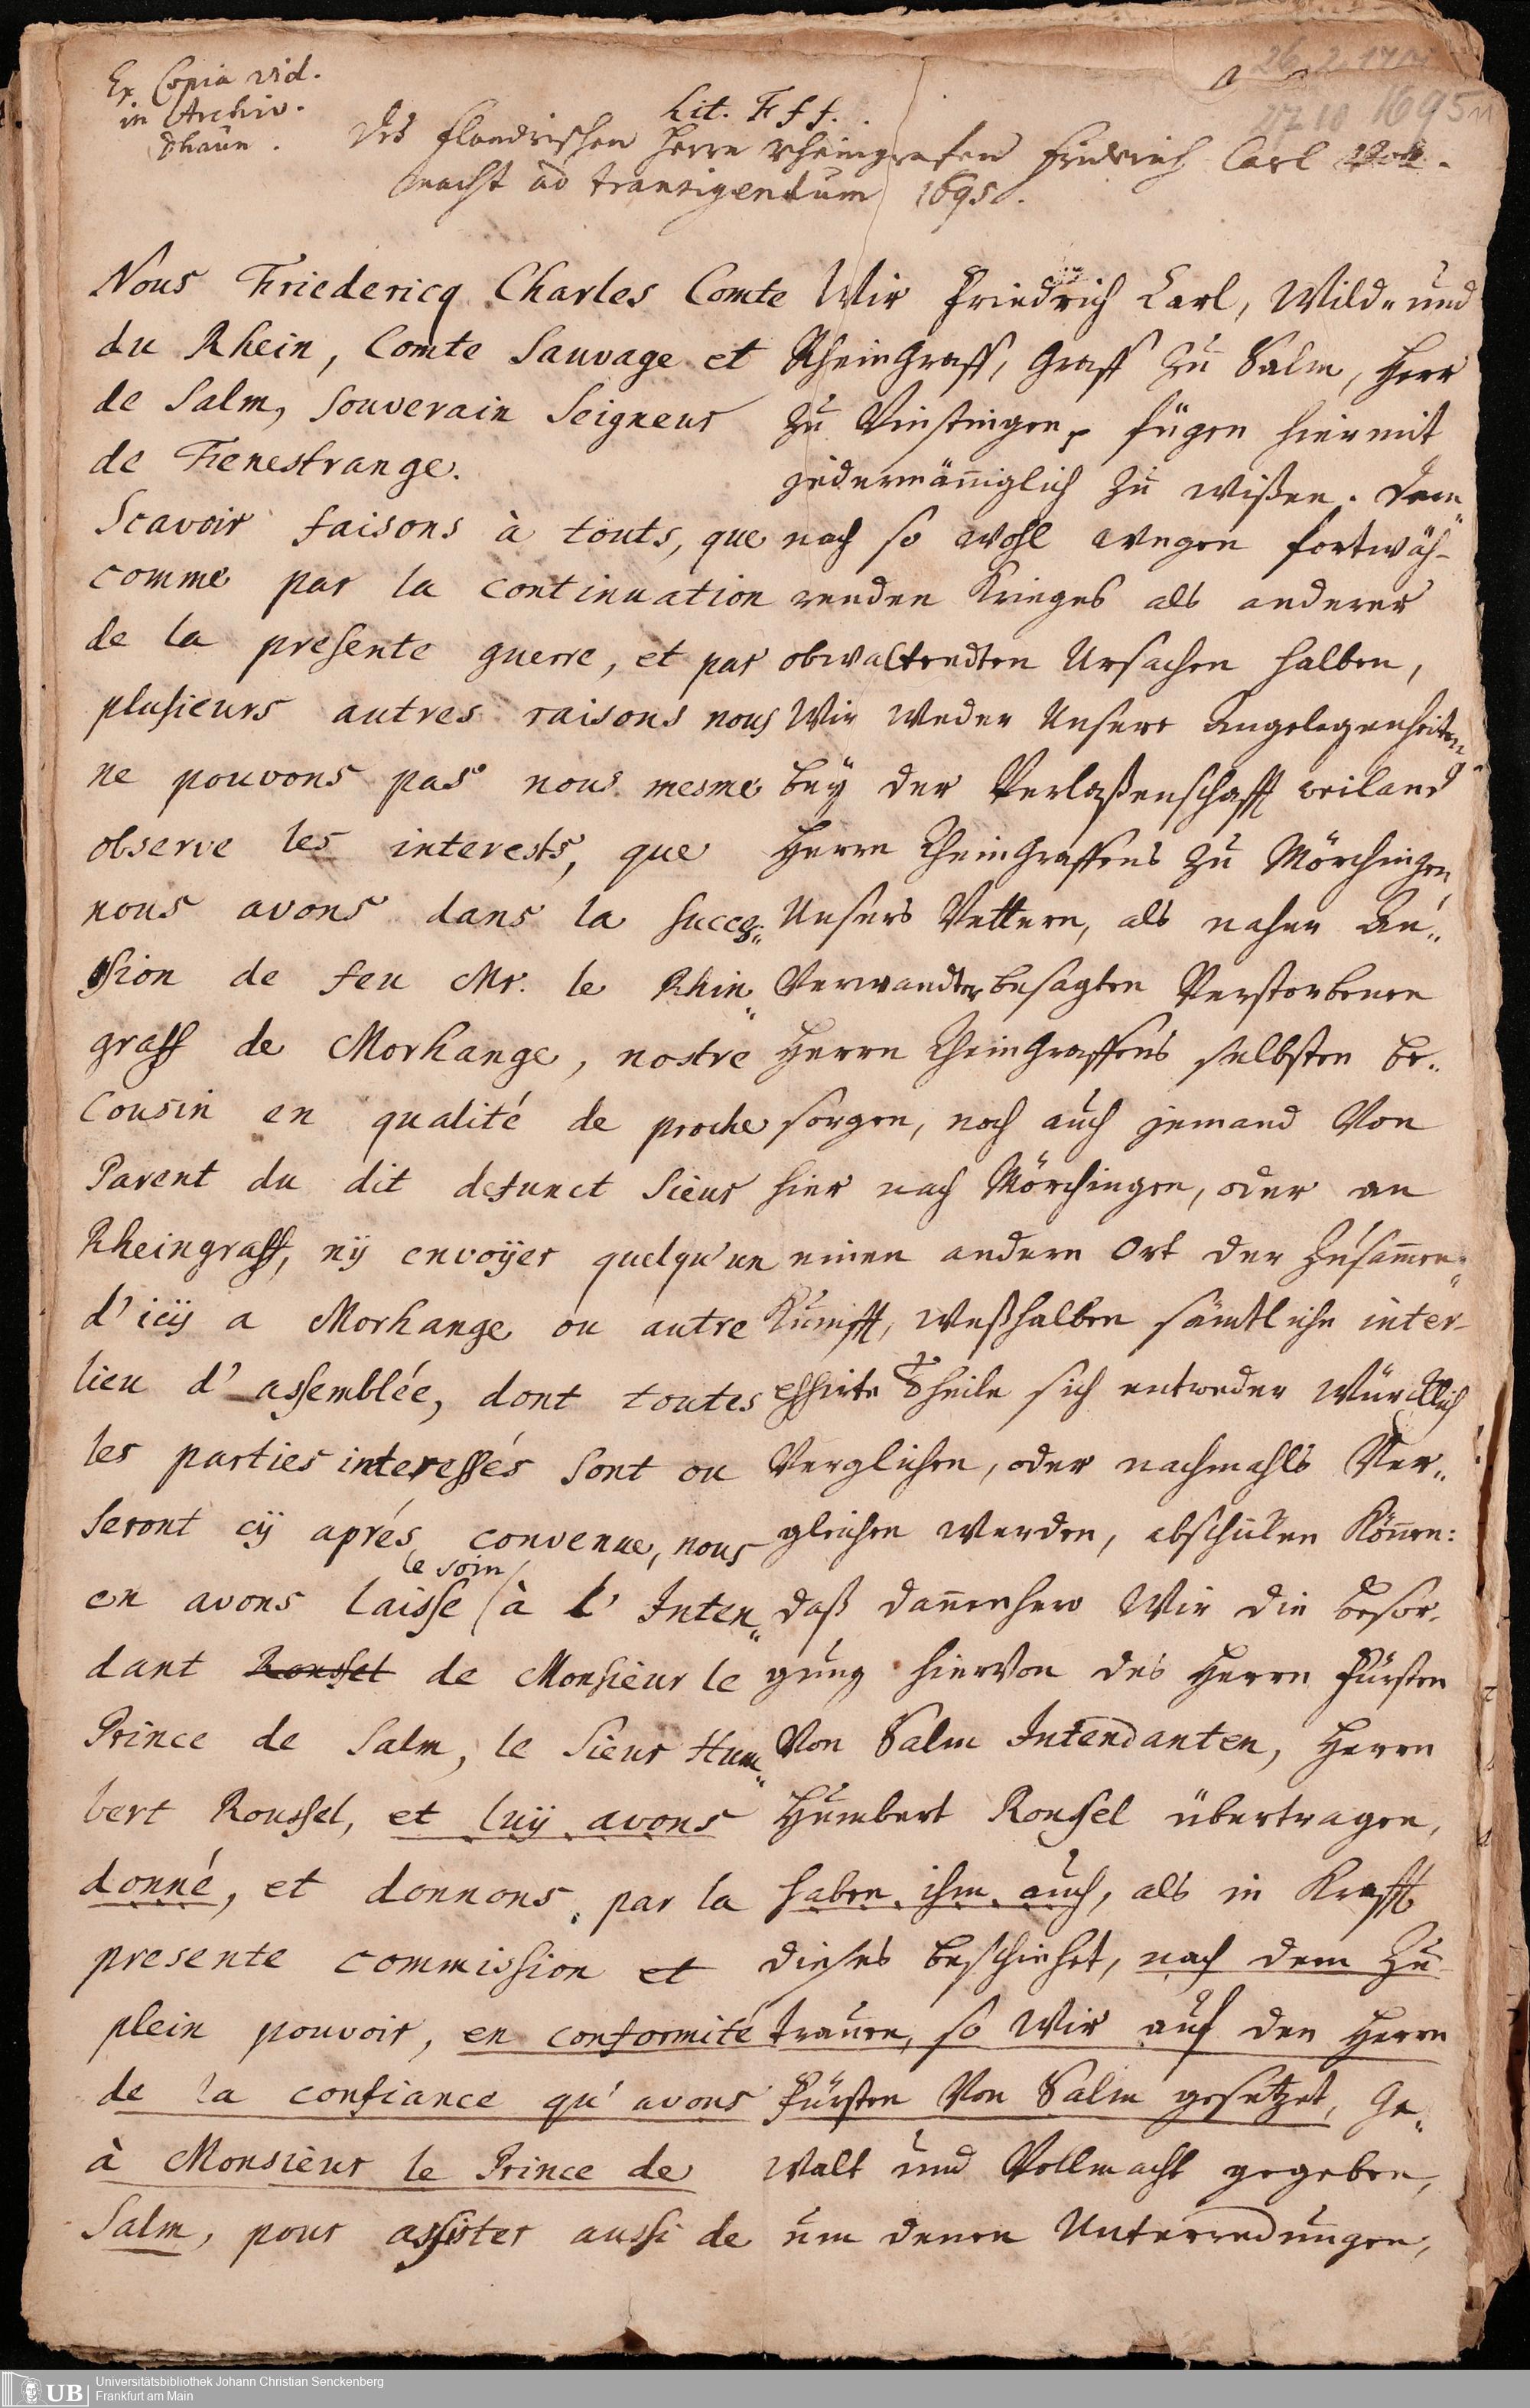 Ex Copia vid.
in Archiv.
Dhaun.
26 2 17
27 10 1695
Lit. Fff.
Des flandrischen Herrn Rheingrafen Friedrich Carl Voll-
macht ad transigendum 1695.
Nous Friedericq Charles Comte
du Rhein, Comte Sauvage et
de Salm, Souverain Seigneur
de Fenestrange.
Scavoir faisons à touts, que
comme par la continuation
de la presente guerre, et par
plusieurs autres raisons nous
ne pouvons pas nous mesme
observe les interests, que
nous avons dans la succes„
sion de feu Mr. le Rhin„
graff de Morhange, nostre
Cousin en qualité de proche
Parent du dit defunct Sieur
Rheingraff, nÿ envoÿer quelqu'un
d'icÿ a Morhange ou autre
lieu d'assemblée, dont toutes
les parties interessés sont ou
seront cÿ aprés convenue, nous
en avons laisse le soin à l'Inten„
dant Roussel de Monsieur le
Prince de Salm, le Sieur Hum„
bert Roussel, et luÿ avons
donné, et donnons par la
presente commission et
plein pouvoir, en conformité
de la confiance qu'avons
à Monsieur le Prince de
Salm, pour assister aussi de
Wir Friedrich Carl, Wild- und
RheinGraff, Graff zu Salm, Herr
zu Vinstingen, fügen hiermit
jedermänniglich zu wißen. Dem„
nach so wohl wegen fortwäh-
renden Krieges als anderer
obwaltendten Ursachen halben,
Wir weder Unsere Angelegenheiten
beÿ der Verlaßenschafft weiland
Herrn RheinGraffens zu Mörchingen
Unsers Vettern, als naher An„
Verwandter besagten Verstorbenen
Herrn RheinGraffens selbsten be„
sorgen, noch auch jemand Von
hier nach Mörchingen, oder an
einen andern Ort der Zusammen„
Kunfft, weßhalben sämtliche inter-
essirte Theile sich entweder Würcklich
Verglichen, oder nachmahls Ver„
gleichen werden, abschicken Können:
daß dannenhero Wir die Besor-
gung hiervon des Herrn Fürsten
Von Salm Intendanten, Herrn
Humbert Roussel übertragen,
haben ihm auch, als in Krafft
dieses beschiehet, nach dem Zu-
trauen, so Wir auf den Herrn
Fürsten Von Salm gesetzet, Ge„
walt und Vollmacht gegeben,
um denen Unterredungen,
UB
Universitätsbibliothek Johann Christian Senckenberg
Frankfurt am Main